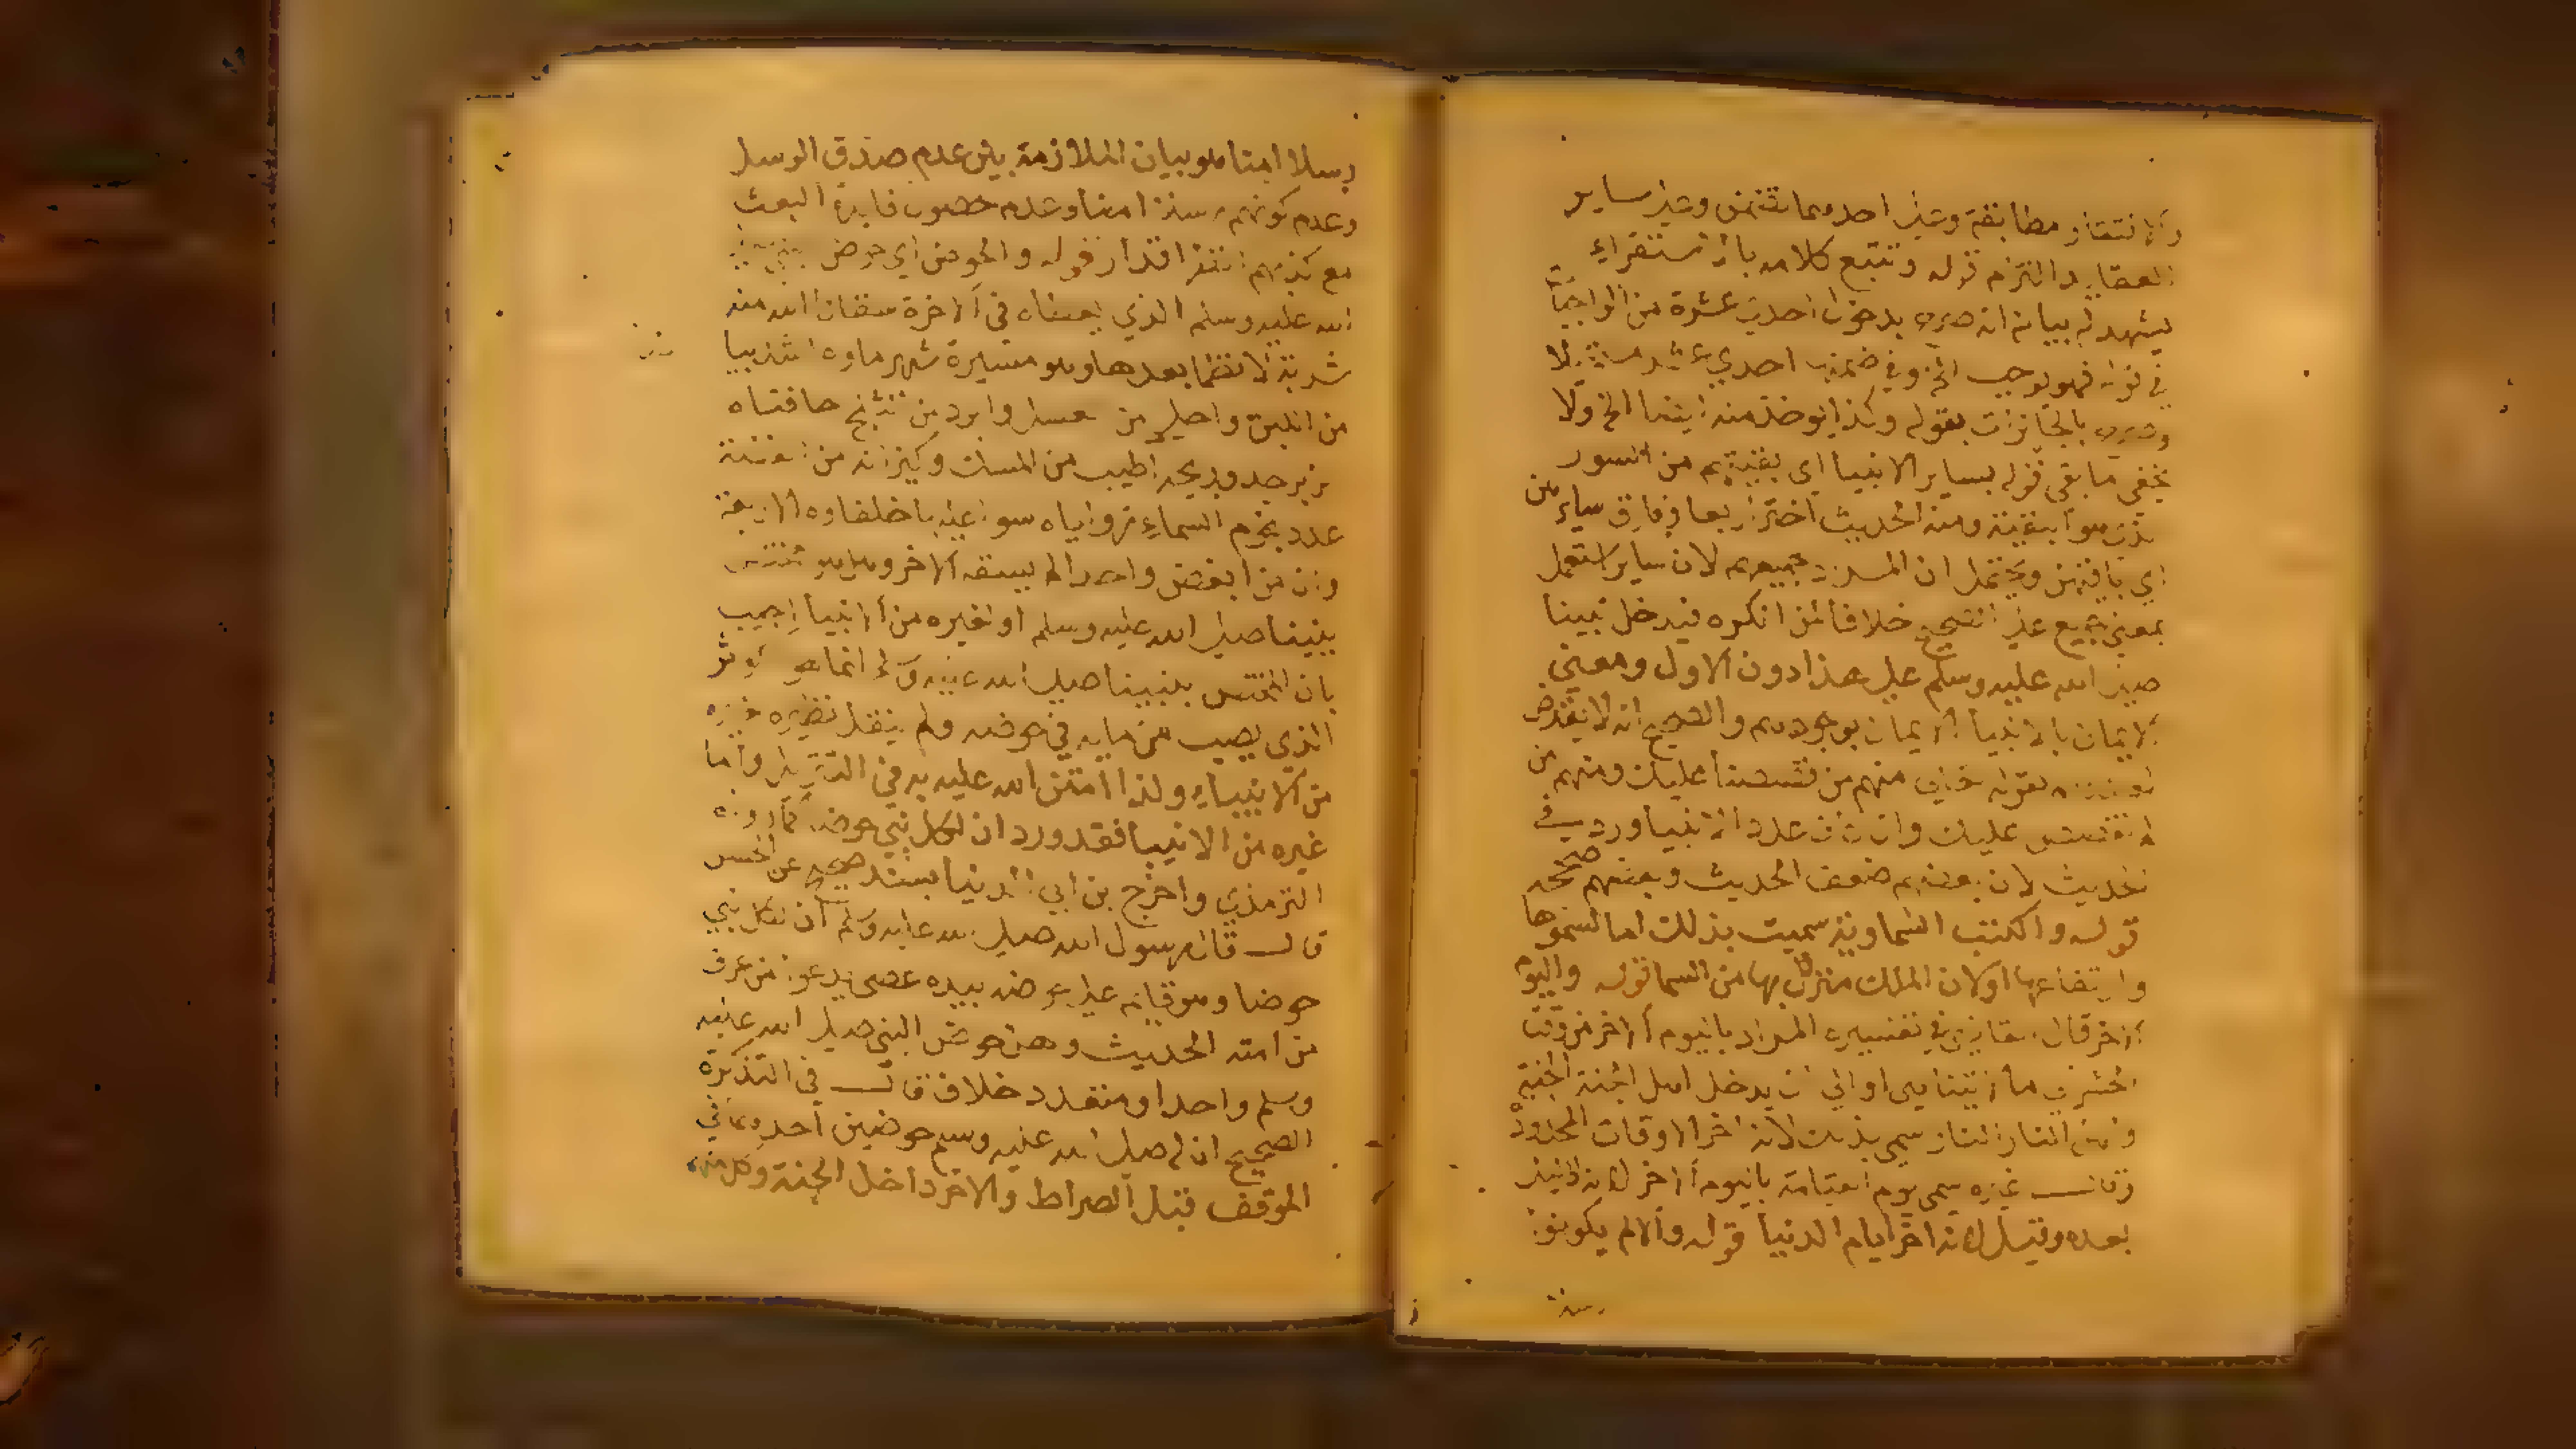 والافتقار مطابقة وعلى احدهما تضمن وعلى ساير
العقايد التزام قوله وتتبع كلامه بالاستقراء
يشهد له بيانه انه صرح بدخول احدى عشرة من الواجبات
في قوله فهو يوجب الخ وفي ضمنه احدى عشر مستحيلا
وصرح بالجايزات بقوله وكذا يوخذ منه ايضا الخ ولا
يخفى ما بقى قوله بساير الانبيا اي بقيتهم من السور
الذي هو البقية ومنه الحديث اختر اربعا وفارق سايرهن
اي باقيهن ويحتمل ان المراد جميعهم لان ساير استعمل
بمعنى جميع على الصحيح خلافا لمن انكره فيدخل نبينا
صلى الله عليه وسلم على هذا دون الاول ومعنى
الايمان بالانبيا الايمان بوجودهم والصحيح انه لا يعلم
لقوله تعالى منهم من قصصنا عليك ومنهم من
لم نقصص عليك وان كان عدد الانبيا ورد في
الحديث لان بعضهم ضعف الحديث وبعضهم صححه
قوله والكتب السماوية سميت بذلك اما لسموها
وارتفاعها او لان الملك منزل بها من السما قوله واليوم
الاخر قال في تفسيره المراد باليوم الاخر من وقت
الحشر الى ما لا يتناهى او الى ان يدخل اهل الجنة الجنة
واهل النار النار سمي بذلك لانه اخر الاوقات المحدودة
وقال غيره سمي يوم القيامة باليوم الاخر لانه لا ليل
بعده وقيل لانه اخر ايام الدنيا قوله والا لم يكونوا
رسلا
رسلا امنا هو بيان الملازمة بين عدم صدق الرسل
وعدم كونهم رسلا امنا وعدم حصول فايدة البعث
مع كذبهم قوله والحوض اي حوض
الله عليه وسلم الذي يعطاه في الاخرة سقانا الله منه
شربة لا نظما بعدها وهو مسيرة شهر ماوه اشد بيا
من اللبن واحلى من عسل وابرد من الثلج حافتاه
زبرجد وريحه اطيب من المسك وكيزانه من الفضة
عدد نجوم السماء زواياه سوا عليه خلفاوه الاربعة
وان من ابغض واحدا لم يسقه الاخر وهل هو مختص
بنبينا صلى الله عليه وسلم او لغيره من الانبيا اجيب
بان المختص بنبينا صلى الله عليه وسلم انما هو الكوثر
الذي يصب من مايه في حوضه ولم ينقل نظيره لغيره
من الانبياء ولذا امتن الله عليه به في التنزيل واما
غيره من الانبيا فقد ورد ان لكل نبي حوضا كما رواه
الترمذي واخرج بن ابي الدنيا بسند صحيح عن الحسن
قال قال رسول الله صلى الله عليه وسلم ان لكل نبي
حوضا وهو قايم على حوضه بيده عصى يدعو من عرف
من امته الحديث وهل حوض النبي صلى الله عليه
وسلم واحد او متعدد خلاف قال في التذكرة
الصحيح ان له صلى الله عليه وسلم حوضين احدهما في
الموقف قبل الصراط والاخر داخل الجنة وكل منهما